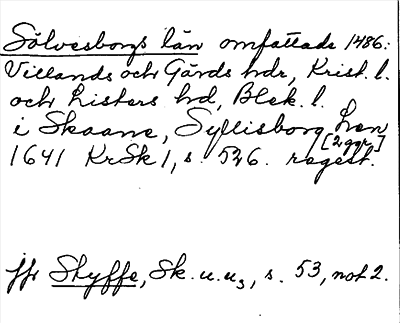 Sölvesborgs län omfattade 1486:
Villands och Gärds hdr, Krist. l.
och Listers hd, Blek. l.
i Skaane, Syllisborg Læn
[2 ggr]
1641 KrSk 1, s. 526. regest.
jfr Styffe, Sk. u. u3, s. 53, not 2.